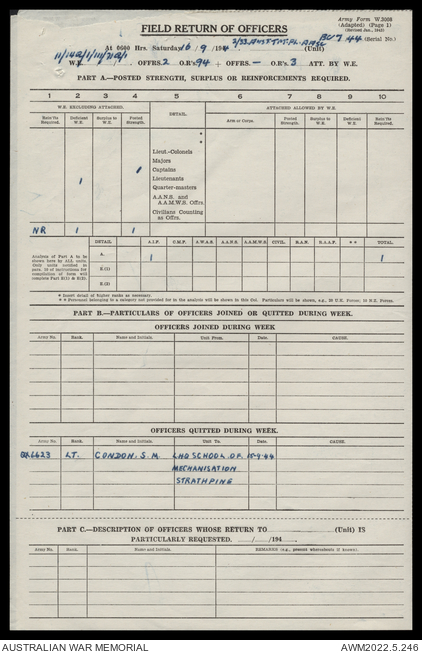 Army Form W.3008
(Adapted) (Page 1)
(Revised Jan., 1943)
FIELD RETURN OF OFFICERS
BU 7 44 (Serial No.)
At 0600 Hrs. Saturday 16/9/1944 (Unit)
W.E. OFFRS. 2 O.R's 94 + OFFRS. — O.R's 3 ATT. BY W.E.
PART A.—POSTED STRENGTH, SURPLUS OR REINFORCEMENTS REQUIRED.
1 2 3 4 5 6 7 8 9 10
W.E. EXCLUDING ATTACHED. DETAIL. ATTACHED ALLOWED BY W.E.
Rein'fts Required. Deficient W.E. Surplus W.E. Posted Strength. Arm or Corps. Posted Strength. Surplus W.E. Deficient W.E. Rein'fts Required.
*
*
Lieut.-Colonels
Majors
1 Captains
1 Lieutenants
Quarter-masters
A.A.N.S. and A.A.M.W.S. Offrs.
Civilians Counting as Offrs.
NR 1 1
DETAIL. A.I.F. C.M.F. A.W.A.S. A.A.N.S. A.A.M.W.S. CIVIL. R.A.N. R.A.A.F. * * TOTAL.
Analysis of Part A to be shown here by ALL units. Only units notified in para. 10 of instructions for compilation of form will complete Part E(1) & E(2).
A. 1 1
E.(1)
E.(2)
* Insert detail of higher ranks as necessary.
* * Personnel belonging to a category not provided for in the analysis will be shown in this Col. Particulars will be shown, e.g., 20 U.K. Forces; 10 N.Z. Forces.
PART B.—PARTICULARS OF OFFICERS JOINED OR QUITTED DURING WEEK.
OFFICERS JOINED DURING WEEK
Army No. Rank. Name and Initials. Unit From. Date. CAUSE.
OFFICERS QUITTED DURING WEEK.
Army No. Rank. Name and Initials. Unit To. Date. CAUSE.
QX6623 LT. CONDON. S. M. LHQ SCHOOL OF 15-9-44
MECHANISATION
STRATHPINE
PART C.—DESCRIPTION OF OFFICERS WHOSE RETURN TO (Unit) IS
PARTICULARLY REQUESTED. / /194
Army No. Rank. Name and Initials. REMARKS (e.g., present whereabouts if known).
AUSTRALIAN WAR MEMORIAL AWM2022.5.246